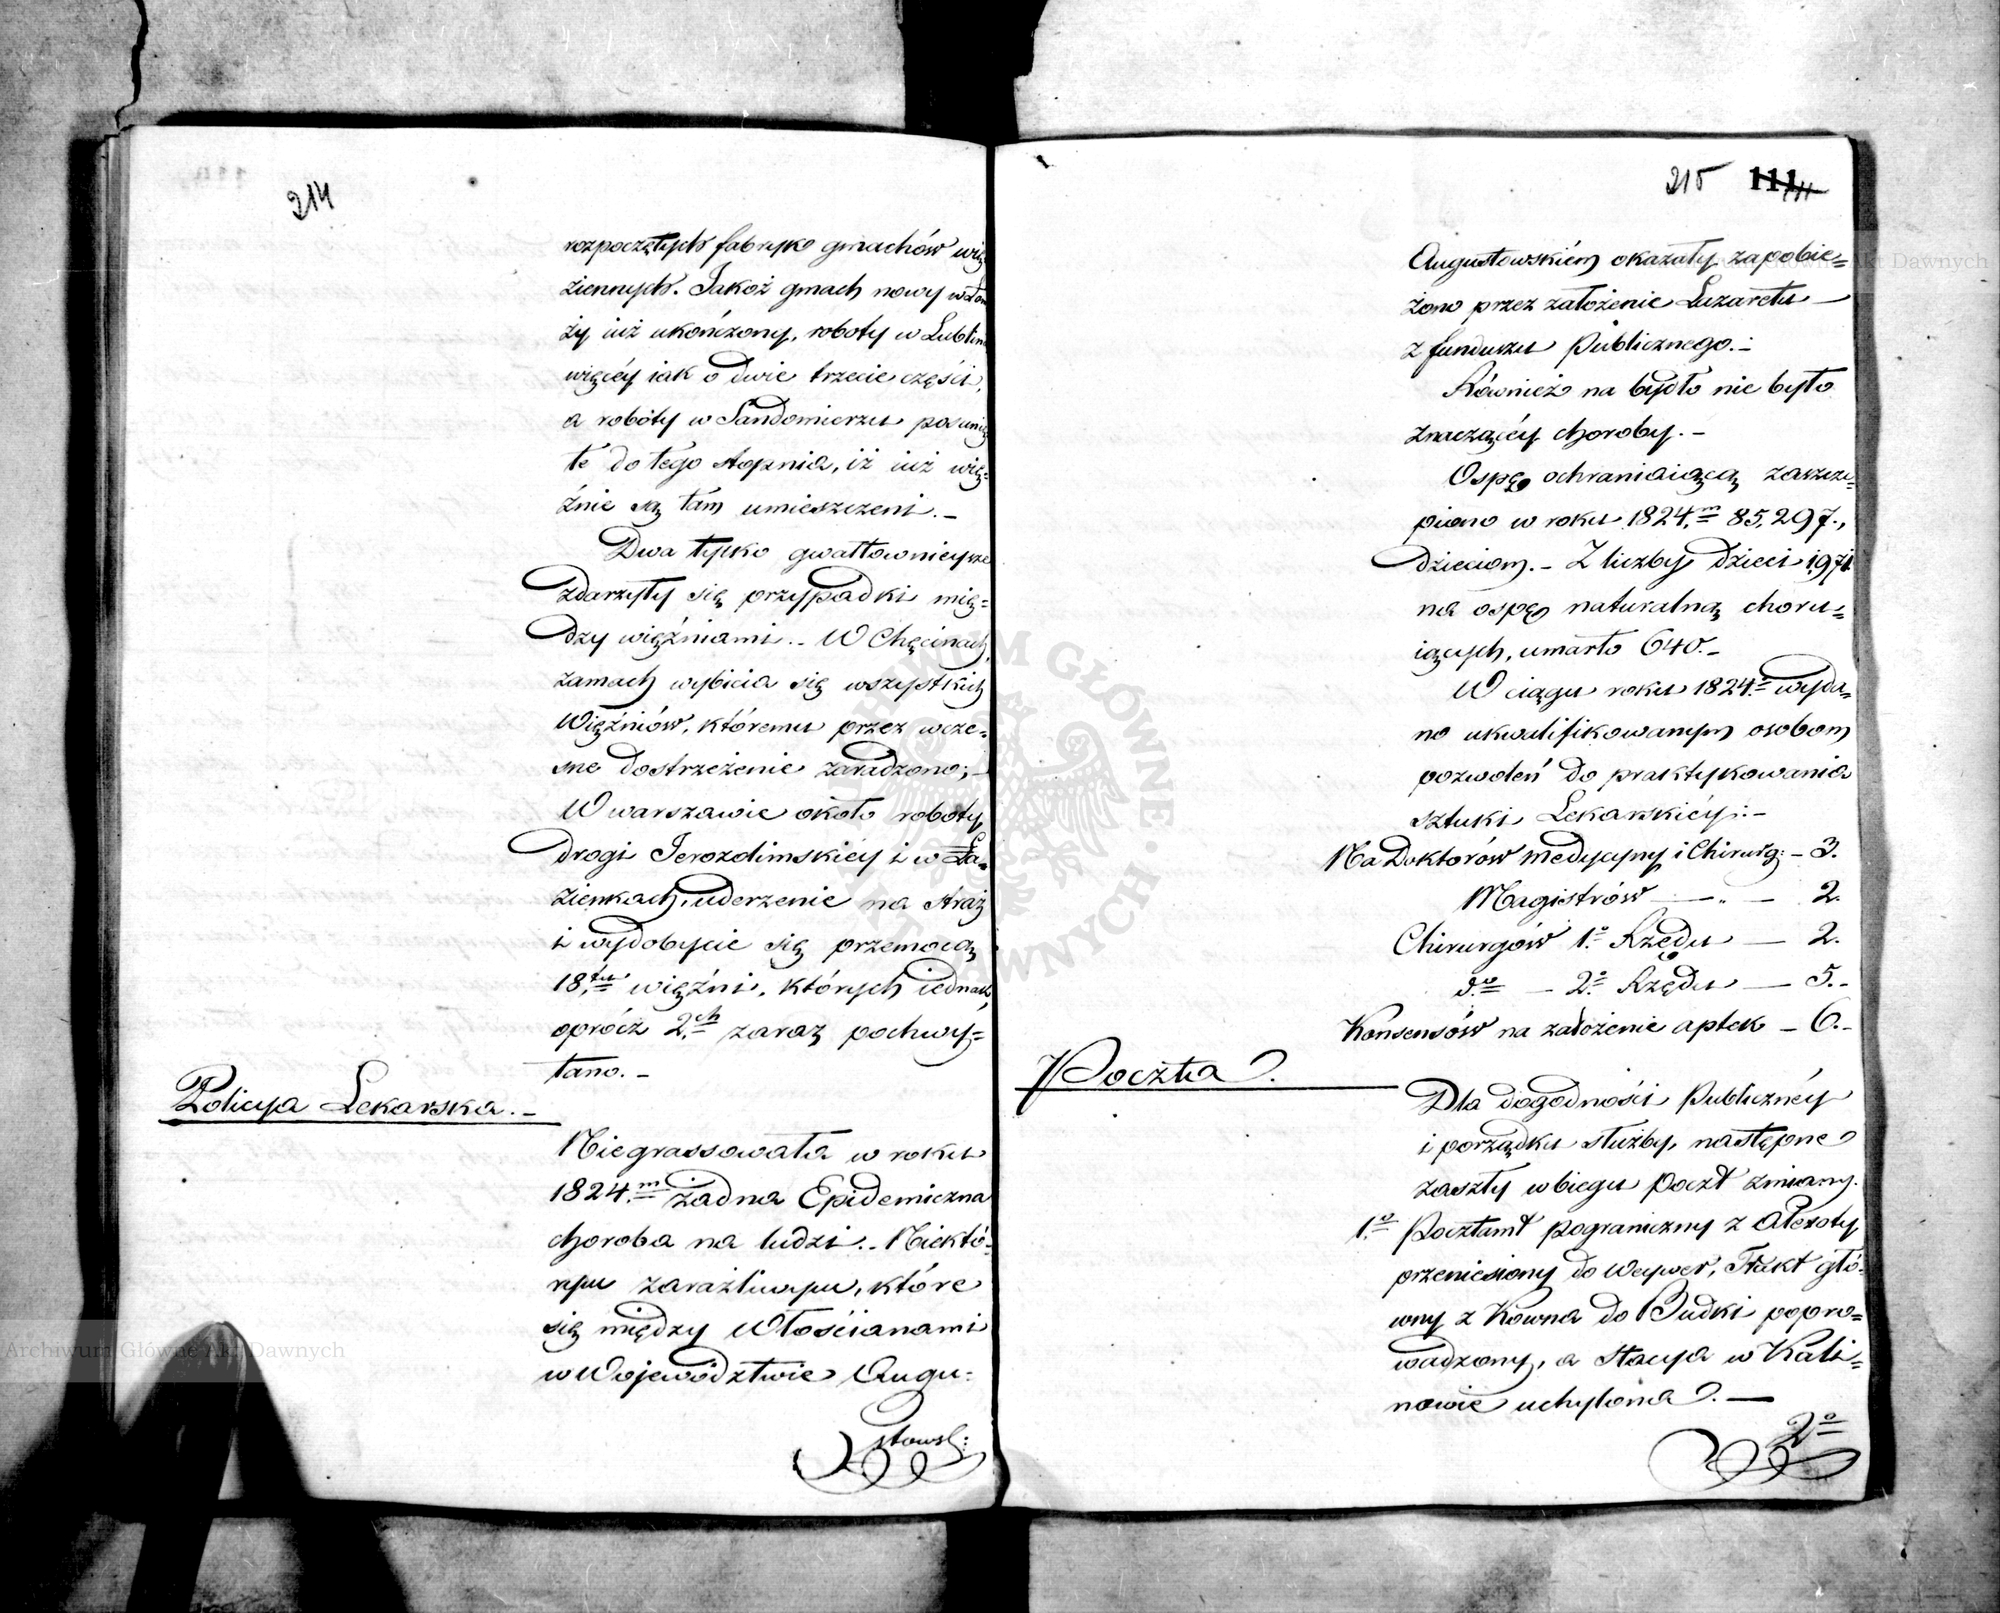 214
rozpoczętych fabryk gmachów wię
ziennych. Jakoż gmach nowy w Łom
ży iuż ukończony, roboty w Lublinie
więcéy iak o dwie trzecie części,
a roboty w Sandomierzu posunię
te do tego stopnia, iż iuż wię=
źnie są tam umieszczeni.–
Dwa tylko gwałtownieysze
zdarzyły się przypadki mię=
dzy więźniami.– W Chęcinach,
zamach wybicia się wszystkich
Więźniów, któremu przez wcze=
sne dostrzeżenie zaradzono;–
W warszawie około roboty
drogi Jerozolimskiéy i w Ła=
zienkach, uderzenie na straż
i wydobycie się przemocą
18.tu więźni, których iednak,
oprócz 2.ch zaraz pochwy=
tano.–
Policya Lekarska.–
Niegrassowała w roku
1824.m żadna Epidemiczna
choroba na ludzi.– Niektó=
rym zaraźliwym, które
się między Włościanami
w Województwie Augu=
stowsk:
215 111
Augustowskiém okazały zapobie=
żono przez założenie Lazaretu
z funduszu Publicznego.–
Również na bydło nie było
znaczącéy choroby.–
Ospę ochraniaiącą zaszcze=
piono w roku 1824.m 85,297.,
dzieciom.– Z liczby dzieci 1971
na ospę naturalną choru=
iących, umarło 640.–
W ciągu roku 1824.o wyda=
no ukwalifikowanym osobom
pozwoleń do praktykowania
sztuki Lekarskiéy:–
Na Doktorów medycyny i Chirurg:– 3.
Magistrów — „ — 2.
Chirurgów 1.o Rzędu — 2.
d.o — 2.o Rzędu — 5.–
Konsensów na założenie aptek – 6.–
Poczta.
Dla dogodności Publicznéy
i porządku służby, następne
zaszły w biegu poczt zmiany.
1.o Pocztamt pograniczny z Alexoty
przeniesiony do Weywer, Trakt głó=
wny z Kowna do Budki popro=
wadzony, a stacya w Kali=
nowie uchylona.—
2o